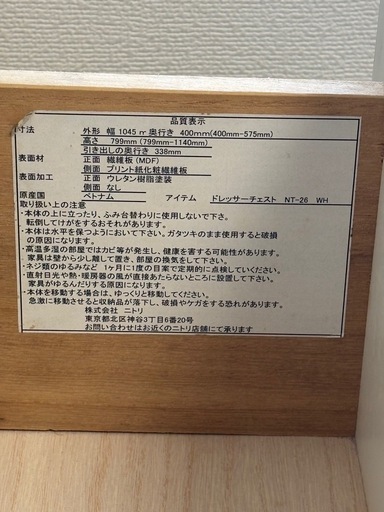 品質表示
寸法 外形 幅 1045 ㎡ 奥行き 400mm(400mm-575mm)
高さ 799mm (799mm-1140mm)
引き出しの奥行き 338mm
表面材 正面 繊維板 (MDF)
側面 プリント紙化粧繊維板
表面加工 正面 ウレタン樹脂塗装
側面 なし
原産国 ベトナム アイテム ドレッサーチェスト NT-26 WH
取り扱い上の注意
・本体の上に立ったり、ふみ台替わりに使用しないで下さい。
転倒してけがをするおそれがあります。
・本体は水平を保つようにおいて下さい。ガタツキのまま使用すると破損
の原因になります。
・高温多湿の部屋ではカビ等が発生し、健康を害する可能性があります。
家具は壁から少し離して置き、部屋の換気をして下さい。
・ネジ類のゆるみなど 1ヶ月に1度の目案で定期的に点検していください。
・直射日光や熱・暖房器の風が直接あたらないところに設置して下さい。
家具がゆるんだりする原因になります。
・本体を移動する場合は、ゆっくりと移動してください。
急激に移動させると収納品が落下し、破損やケガをする恐れがあります。
株式会社 ニトリ
東京都北区神谷3丁目6番20号
お問い合わせはお近くのニトリ店舗にて承ります